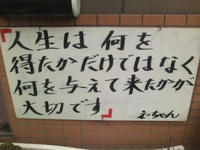 「人生は 何を
得たかだけではなく
何を与えて来たかが
大切です」
え〜ちゃん